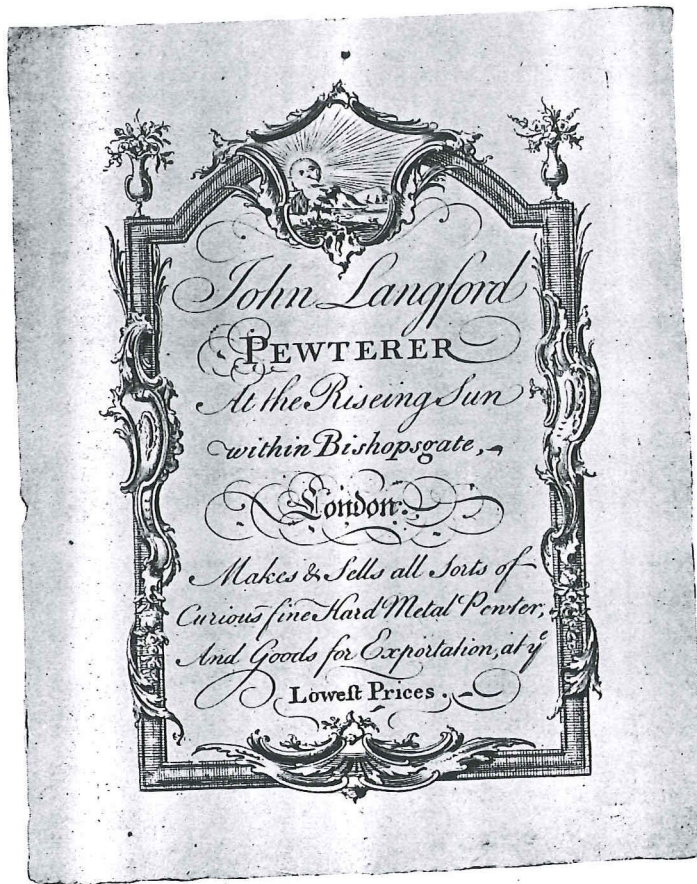 John Langford
PEWTERER
At the Riseing Sun
within Bishopsgate,
London.
Makes & Sells all Sorts of
Curious fine Hard Metal Pewter,
And Goods for Exportation, at yᵉ
Loweſt Prices.